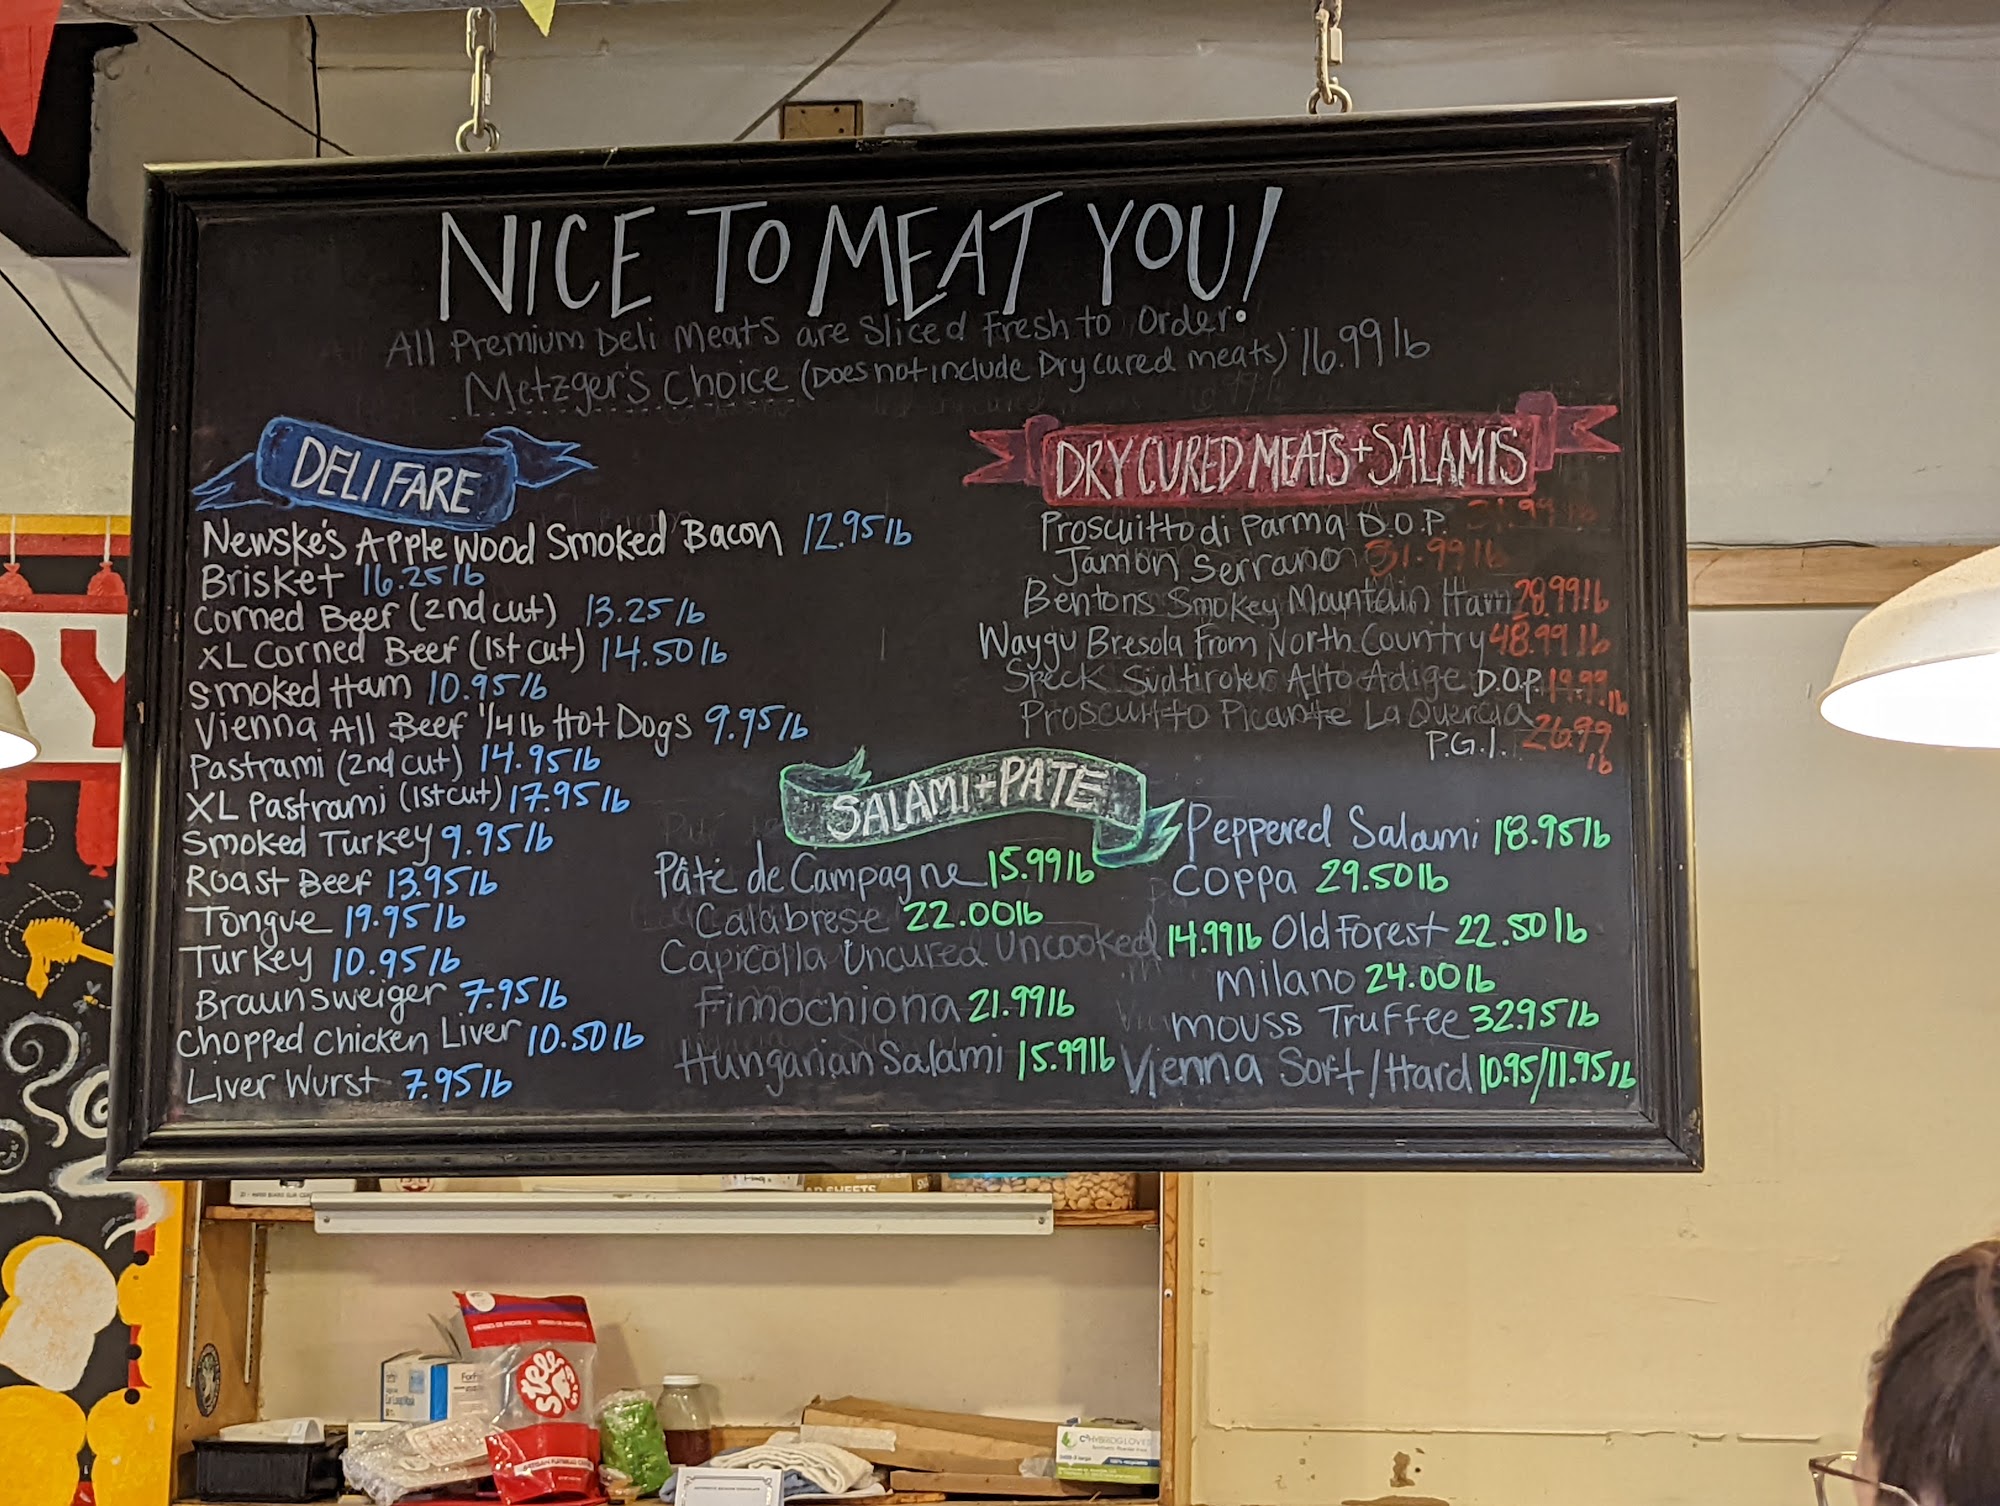 NICE TO MEAT YOU!
All Premium Deli Meats are Sliced Fresh to Order.
Metzger's Choice (Does not include Dry cured meats) 16.99 lb
DELI FARE
Newske's Applewood Smoked Bacon 12.95 lb
Brisket 16.25 lb
Corned Beef (2nd cut) 13.25 lb
XL Corned Beef (1st cut) 14.50 lb
Smoked Ham 10.95 lb
Vienna All Beef 1/4 lb Hot Dogs 9.95 lb
Pastrami (2nd cut) 14.95 lb
XL Pastrami (1st cut) 17.95 lb
Smoked Turkey 9.95 lb
Roast Beef 13.95 lb
Tongue 19.95 lb
Turkey 10.95 lb
Braunsweiger 7.95 lb
Chopped Chicken Liver 10.50 lb
Liver Wurst 7.95 lb
DRY CURED MEATS + SALAMIS
Proscuitto di Parma D.O.P.
Jamon Serrano 31.99 lb
Bentons Smokey Mountain Ham 28.99 lb
Waygu Bresola From North Country 48.99 lb
Speck Südtiroler Alto Adige D.O.P. 19.99 lb
Proscuitto Picante La Quercia
P.G.I. 26.99 lb
SALAMI + PATE
Pâté de Campagne 15.99 lb
Calabrese 22.00 lb
Capicolla Uncured Uncooked 14.99 lb
Fimochiona 21.99 lb
Hungarian Salami 15.99 lb
Peppered Salami 18.95 lb
Coppa 29.50 lb
Old Forest 22.50 lb
Milano 24.00 lb
Mouss Truffee 32.95 lb
Vienna Soft/Hard 10.95/11.95 lb
RY
SHEETS
HERBES DE PROVENCE
stellas
HYBRIDGLOVES